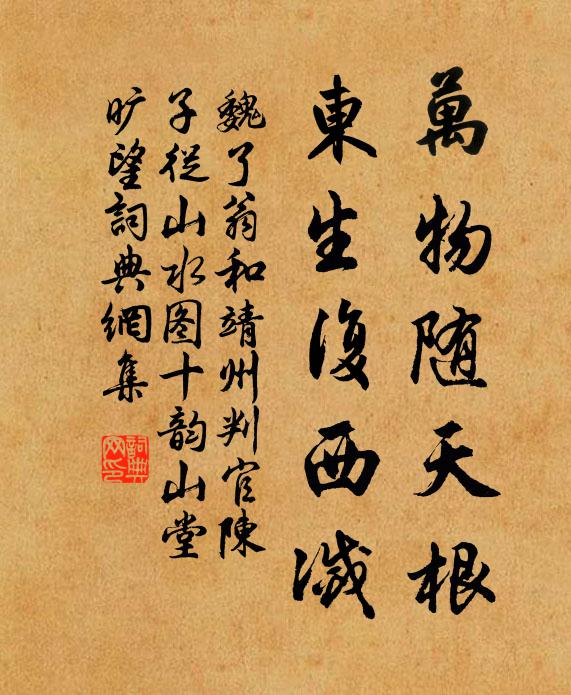 萬物随天根
東生復西滅
魏了翁和靖州判官陳
子從山水图十韵山堂
旷望詞典網集
詞典网印